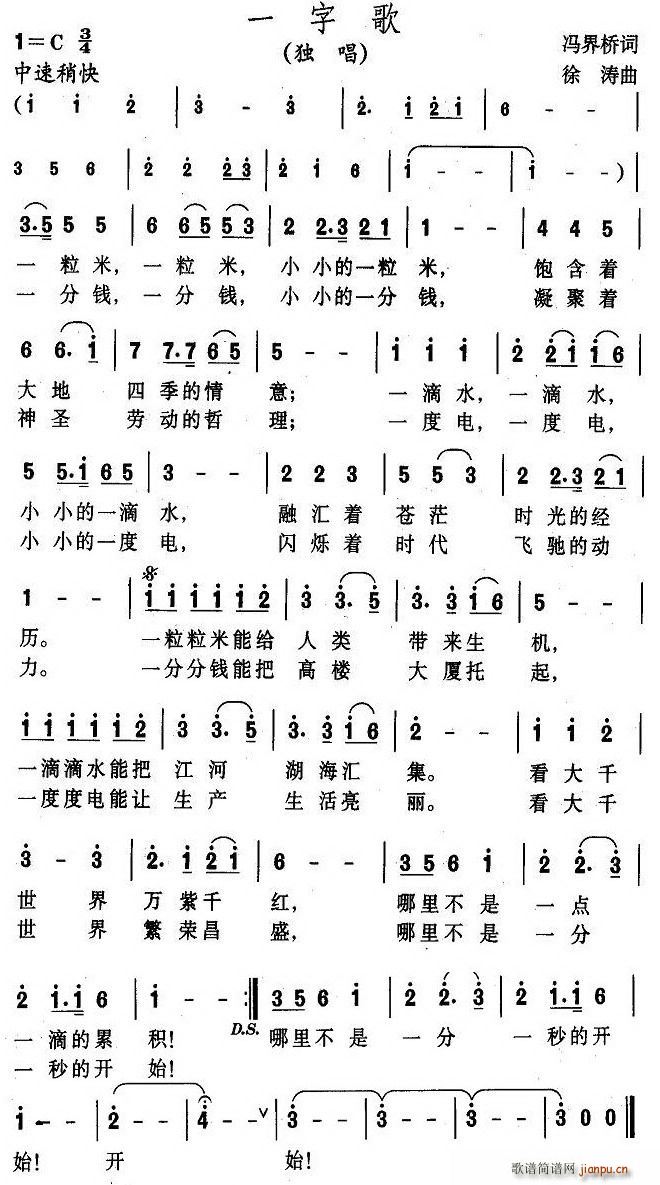 一字歌
1=C 3/4
(独唱)
冯界桥词
中速稍快
徐涛曲
(i i 2 | 3 - 3 | 2. i 2 i | 6 - - |
3 5 6 | 2 2 2 3 | 2 i 6 | i - - | i - - )|
3.5 5 5 | 6 6 5 5 3 | 2 2.3 2 1 | 1 - - | 4 4 5 |
一粒米，一粒米，小小的一粒米，饱含着
一分钱，一分钱，小小的一分钱，凝聚着
6 6. i | 7 7.7 6 5 | 5 - - | i i i | 2 2 i i 6 |
大地四季的情意；一滴水，一滴水，
神圣劳动的哲理；一度电，一度电，
5 5.i 6 5 | 3 - - | 2 2 3 | 5 5 3 | 2 2.3 2 1 |
小小的一滴水，融汇着苍茫时光的经
小小的一度电，闪烁着时代飞驰的动
1 - - | i i i i i 2 | 3 3. 5 | 3. 3 i 6 | 5 - - |
历。一粒粒米能给人类带来生机，
力。一分分钱能把高楼大厦托起，
i i i i i 2 | 3 3. 5 | 3. 3 i 6 | 2 - - | i i 2 |
一滴滴水能把江河湖海汇集。看大千
一度度电能让生产生活亮丽。看大千
3 - 3 | 2. i 2 i | 6 - - | 3 5 6 i | 2 2. 3 |
世界万紫千红，哪里不是一点
世界繁荣昌盛，哪里不是一分
2 i.i 6 | i - - :| 3 5 6 i | 2 2. 3 | 2 i.i 6 |
D.S.
一滴的累积！哪里不是一分一秒的开
一秒的开始！
i - - | 2 - - | 4 - - ∨ | 3 - - | 3 - - | 3 - - | 3 0 0 ‖
始！开始！
歌谱简谱网
jianpu.cn